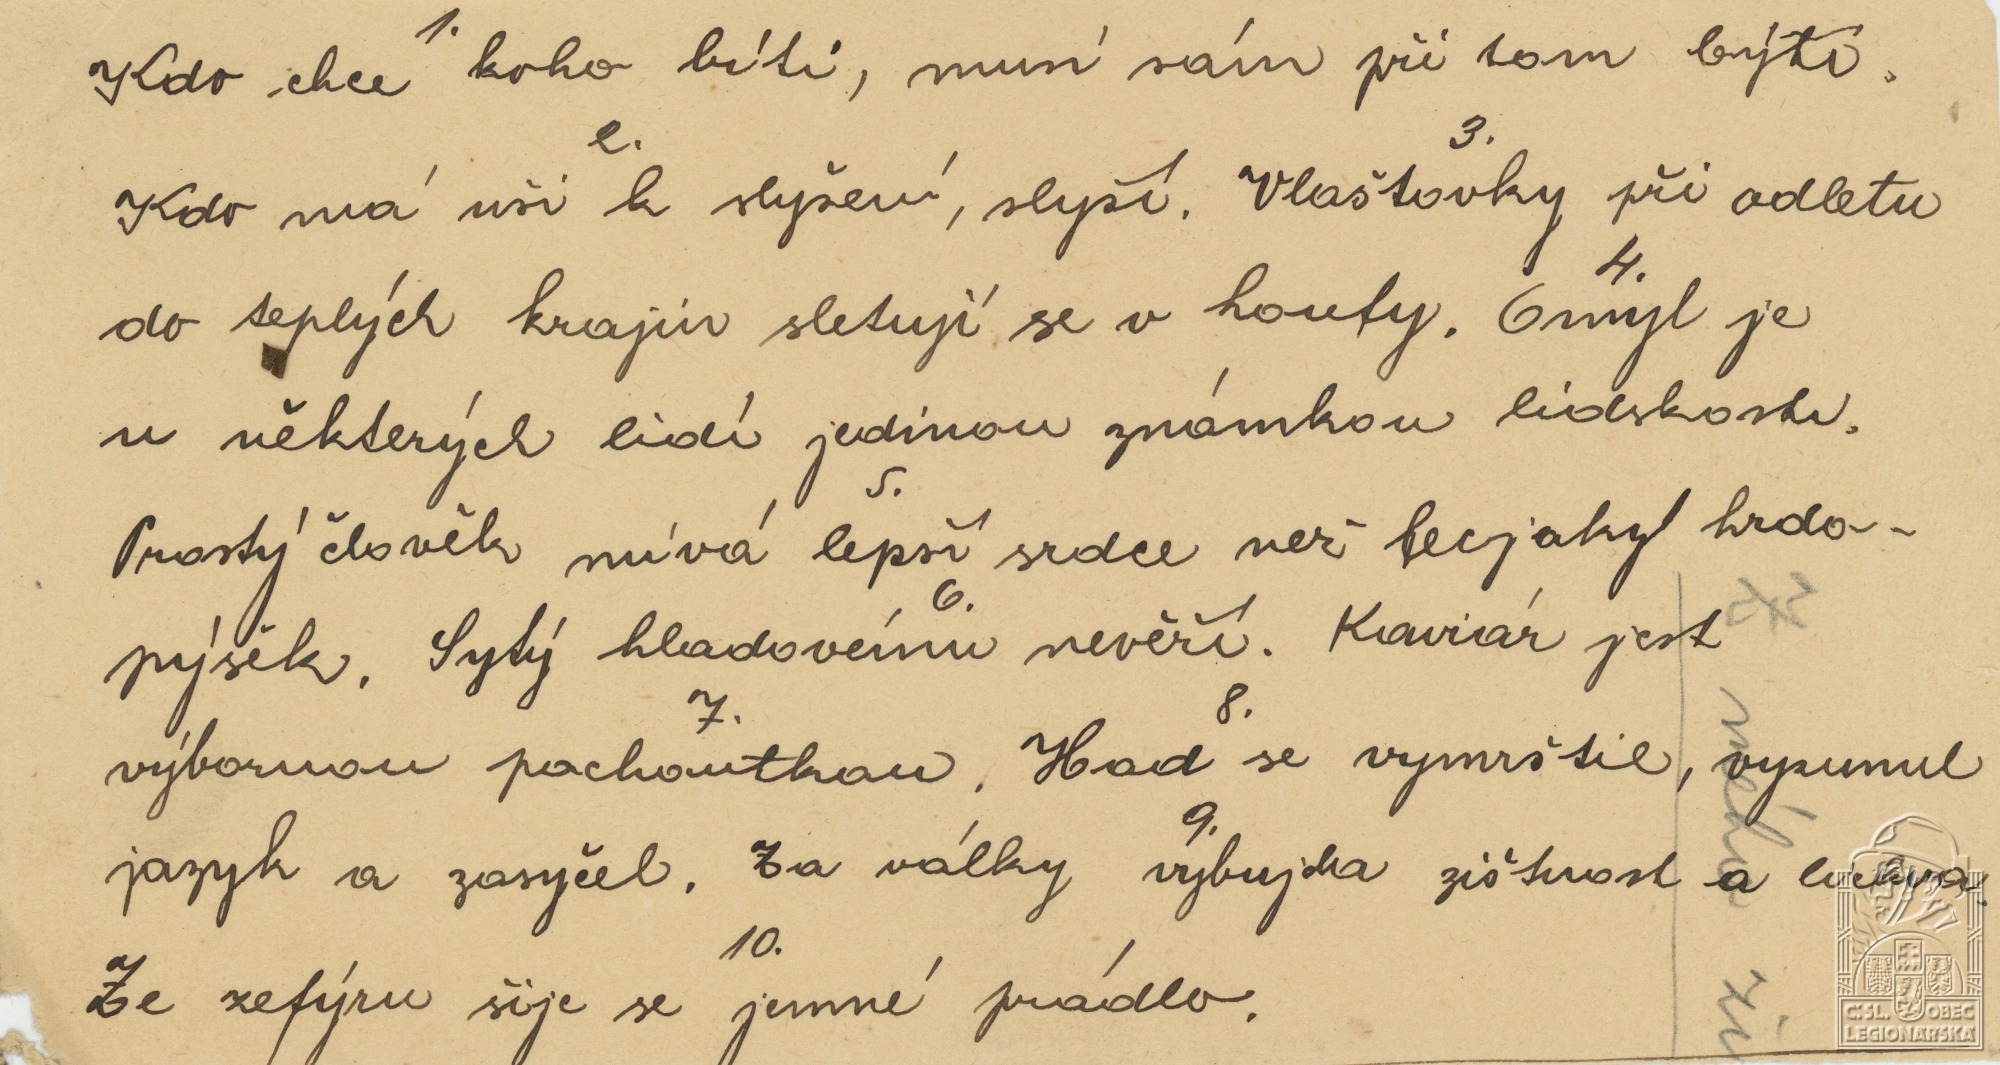 1.
Kdo chce koho bíti, musí sám při tom býti.
2. 3.
Kdo má uši k slyšení, slyší. Vlaštovky při odletu
4.
do teplých krajin sletují se v houfy. Omyl je
u některých lidí jedinou známkou lidskosti.
5.
Prostý člověk mívá lepší srdce než lecjaký hrdo-
6.
pýšek. Sytý hladovému nevěří. Kaviár jest
7. 8.
výbornou pochoutkou. Had se vymrštil, vysunul
9.
jazyk a zasyčel. Za války vybujela zištnost a lichva.
10.
Ze zefýru šije se jemné prádlo.
mého
Č:SL. OBEC
LEGIONÁŘSKÁ